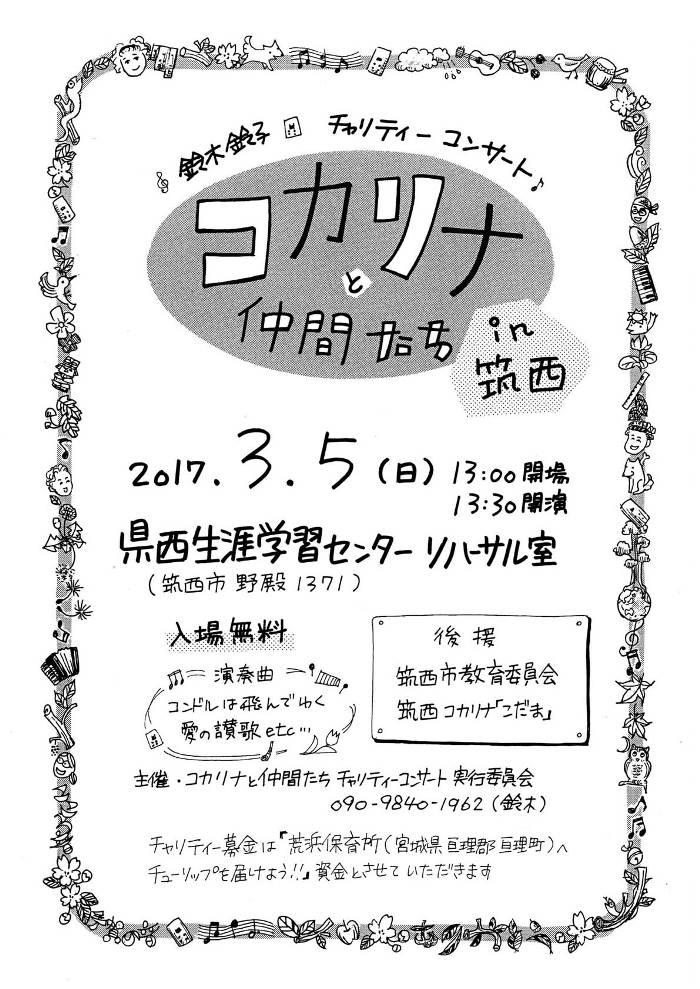 鈴木鈴子 チャリティー コンサート
コカリナ
と
仲間たち
in
筑西
2017.3.5(日) 13:00 開場
13:30 開演
県西生涯学習センター リハーサル室
(筑西市 野殿 1371)
入場無料
演奏曲
コンドルは飛んでゆく
愛の讃歌 etc…
後援
筑西市教育委員会
筑西コカリナ「こだま」
主催・コカリナと仲間たち チャリティーコンサート 実行委員会
090-9840-1962(鈴木)
チャリティー募金は「荒浜保育所(宮城県亘理郡亘理町)へ
チューリップを届けよう!!」資金とさせていただきます